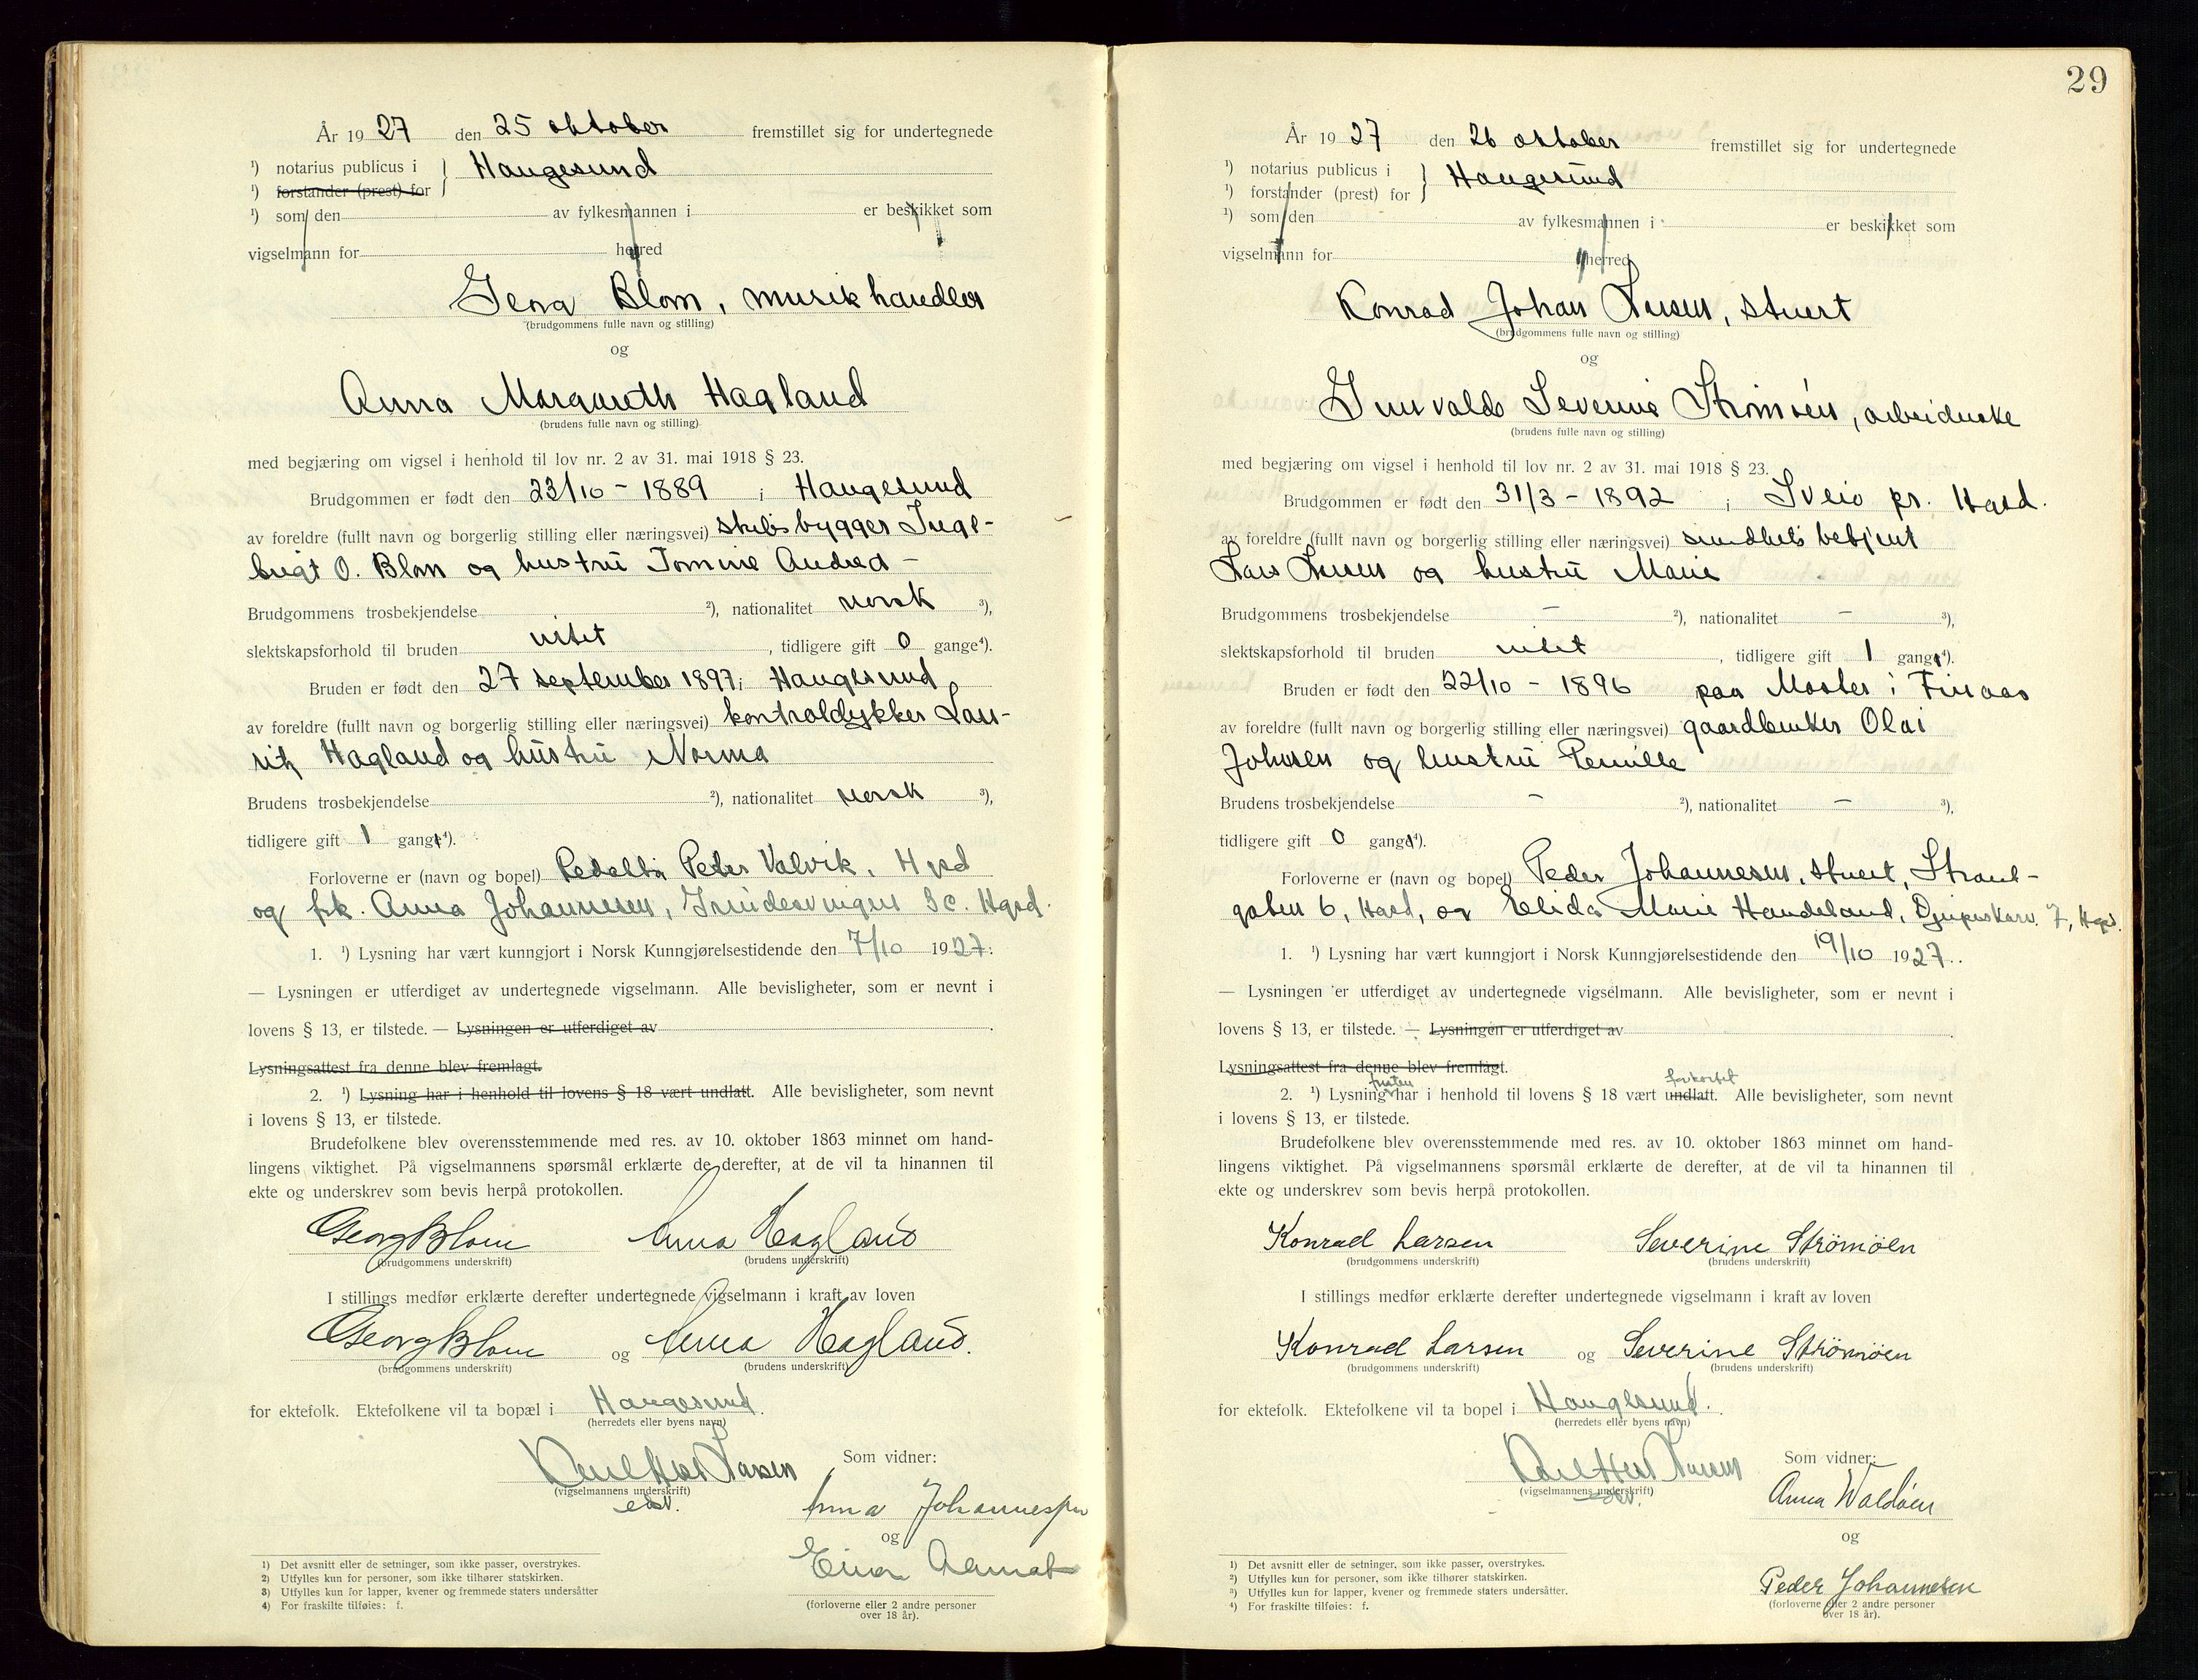 År 19 27 den 25 oktober fremstillet sig for undertegnede
¹) notarius publicus i } Haugesund
¹) forstander (prest) for
¹) som den av fylkesmannen i er beskikket som
vigselmann for herred
Georg Blom, musikhandler
(brudgommens fulle navn og stilling)
og
Anna Margareth Hagland
(brudens fulle navn og stilling)
med begjæring om vigsel i henhold til lov nr. 2 av 31. mai 1918 § 23.
Brudgommen er født den 23/10 - 1889 i Haugesund
av foreldre (fullt navn og borgerlig stilling eller næringsvei) skibsbygger Inge-
brigt O. Blom og hustru Tomine Andrea -
Brudgommens trosbekjendelse ²), nationalitet norsk ³),
slektskapsforhold til bruden intet , tidligere gift 0 gange⁴).
Bruden er født den 27 september 1897 i Haugesund
av foreldre (fullt navn og borgerlig stilling eller næringsvei) kontroldykker Lau-
ritz Hagland og hustru Norma
Brudens trosbekjendelse ²), nationalitet norsk ³),
tidligere gift 1 gange⁴).
Forloverne er (navn og bopel) Peder Valvik, Hgsd
og frk. Anna Johannesen, Hgsd.
1. ¹) Lysning har vært kunngjort i Norsk Kunngjørelsestidende den 7/10 1927.
— Lysningen er utferdiget av undertegnede vigselmann. Alle bevisligheter, som er nevnt i
lovens § 13, er tilstede. — Lysningen er utferdiget av .
Lysningsattest fra denne blev fremlagt.
2. ¹) Lysning har i henhold til lovens § 18 vært undlatt. Alle bevisligheter, som nevnt
i lovens § 13, er tilstede.
Brudefolkene blev overensstemmende med res. av 10. oktober 1863 minnet om hand-
lingens viktighet. På vigselmannens spørsmål erklærte de derefter, at de vil ta hinannen til
ekte og underskrev som bevis herpå protokollen.
Georg Blom Anna Hagland
(brudgommens underskrift) (brudens underskrift)
I stillings medfør erklærte derefter undertegnede vigselmann i kraft av loven
Georg Blom og Anna Hagland.
(brudgommens underskrift) (brudens underskrift)
for ektefolk. Ektefolkene vil ta bopæl i Haugesund.
(herredets eller byens navn)
Larsen Som vidner:
(vigselmannens underskrift)
Anna Johannesen
og
Einar
(forloverne eller 2 andre personer
over 18 år).
1) Det avsnitt eller de setninger, som ikke passer, overstrykes.
2) Utfylles kun for personer, som ikke tilhører statskirken.
3) Utfylles kun for lapper, kvener og fremmede staters undersåtter
4) For fraskilte tilføies: f.
29
År 19 27 den 26 oktober fremstillet sig for undertegnede
¹) notarius publicus i } Haugesund
¹) forstander (prest) for
¹) som den av fylkesmannen i er beskikket som
vigselmann for herred
Konrad Johan Larsen, stuert
(brudgommens fulle navn og stilling)
og
Gunvalda Severine Strömöen, arbeiderske
(brudens fulle navn og stilling)
med begjæring om vigsel i henhold til lov nr. 2 av 31. mai 1918 § 23.
Brudgommen er født den 31/3 - 1892 i Sveio pr. Hgsd.
av foreldre (fullt navn og borgerlig stilling eller næringsvei) sundhetsbetjent
Lars Larsen og hustru Marie
Brudgommens trosbekjendelse - ²), nationalitet - ³),
slektskapsforhold til bruden intet , tidligere gift 1 gange⁴).
Bruden er født den 22/10 - 1896 paa Moster i Finaas
av foreldre (fullt navn og borgerlig stilling eller næringsvei) gaardbruker Olai
Johnsen og hustru Pernille
Brudens trosbekjendelse - ²), nationalitet - ³),
tidligere gift 0 gange⁴).
Forloverne er (navn og bopel) Peder Johannesen, stuert, Strand-
gaten 6, Hgsd, og Elida Marie Handeland, 7, Hgsd.
1. ¹) Lysning har vært kunngjort i Norsk Kunngjørelsestidende den 19/10 1927.
— Lysningen er utferdiget av undertegnede vigselmann. Alle bevisligheter, som er nevnt i
lovens § 13, er tilstede. — Lysningen er utferdiget av .
Lysningsattest fra denne blev fremlagt.
fristen forkortet
2. ¹) Lysning har i henhold til lovens § 18 vært undlatt. Alle bevisligheter, som nevnt
i lovens § 13, er tilstede.
Brudefolkene blev overensstemmende med res. av 10. oktober 1863 minnet om hand-
lingens viktighet. På vigselmannens spørsmål erklærte de derefter, at de vil ta hinannen til
ekte og underskrev som bevis herpå protokollen.
Konrad Larsen Severine Strömöen
(brudgommens underskrift) (brudens underskrift)
I stillings medfør erklærte derefter undertegnede vigselmann i kraft av loven
Konrad Larsen og Severine Strömöen
(brudgommens underskrift) (brudens underskrift)
for ektefolk. Ektefolkene vil ta bopel i Haugesund.
(herredets eller byens navn)
Larsen Som vidner:
(vigselmannens underskrift)
Anna Waldöen
og
Peder Johannesen
(forloverne eller 2 andre personer
over 18 år).
¹) Det avsnitt eller de setninger, som ikke passer, overstrykes.
²) Utfylles kun for personer, som ikke tilhører statskirken.
³) Utfylles kun for lapper, kvener og fremmede staters undersåtter.
⁴) For fraskilte tilføies: f.